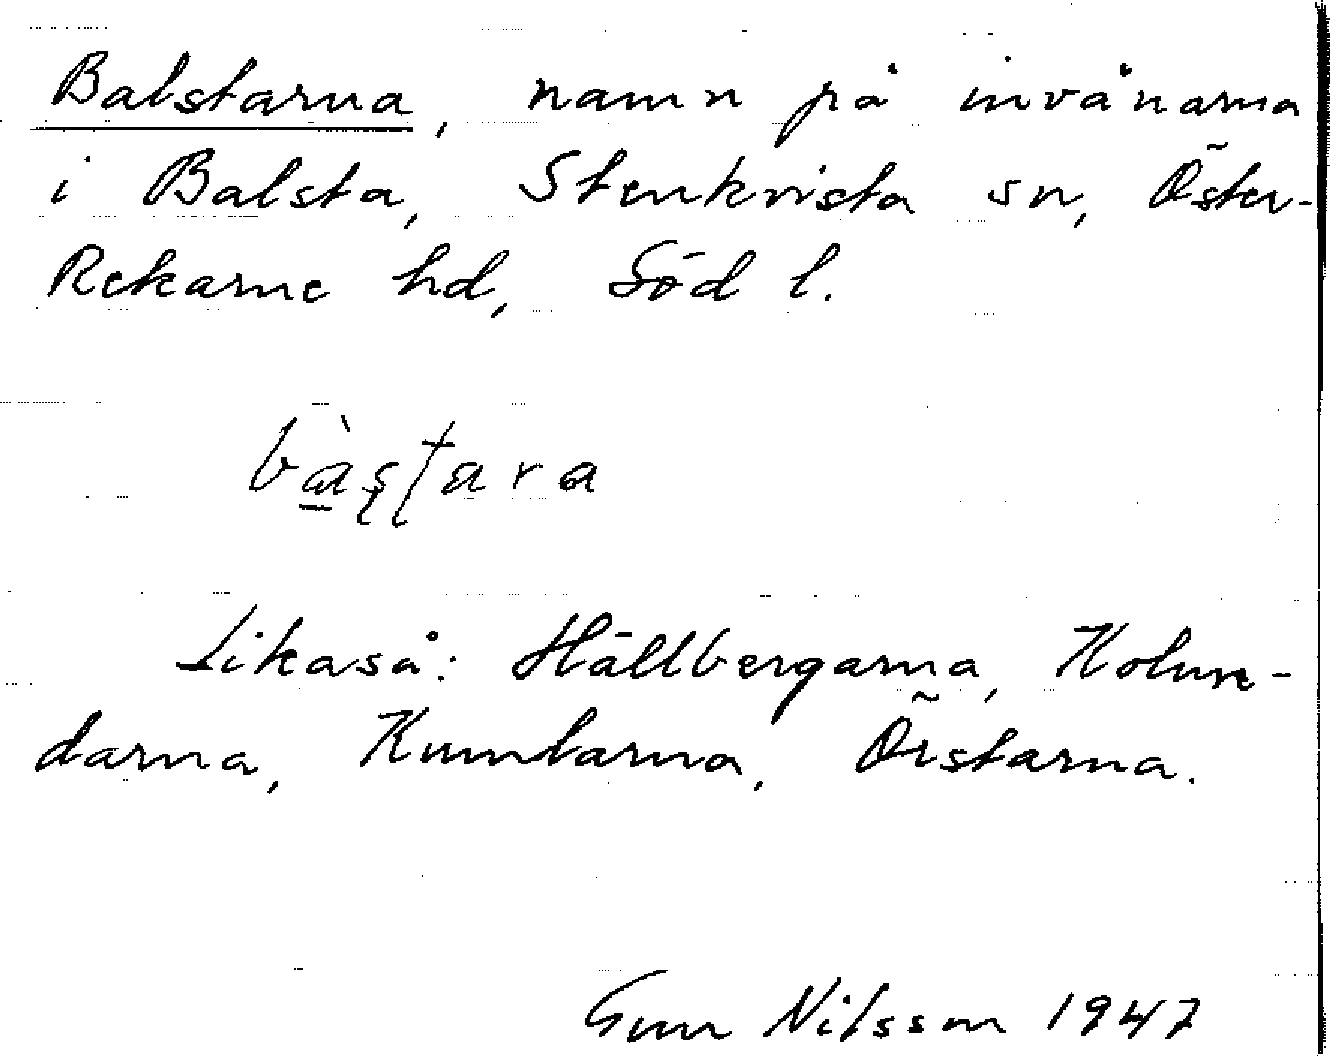 Balstarna, namn på invånarna
i Balsta, Stenkvista sn, Öster-
Rekarne hd, Söd l.
bàʂʈara
Likaså: Hällbergarna, Kolun-
darna, Kumlarna, Örstarna.
Gun Nilsson 1947